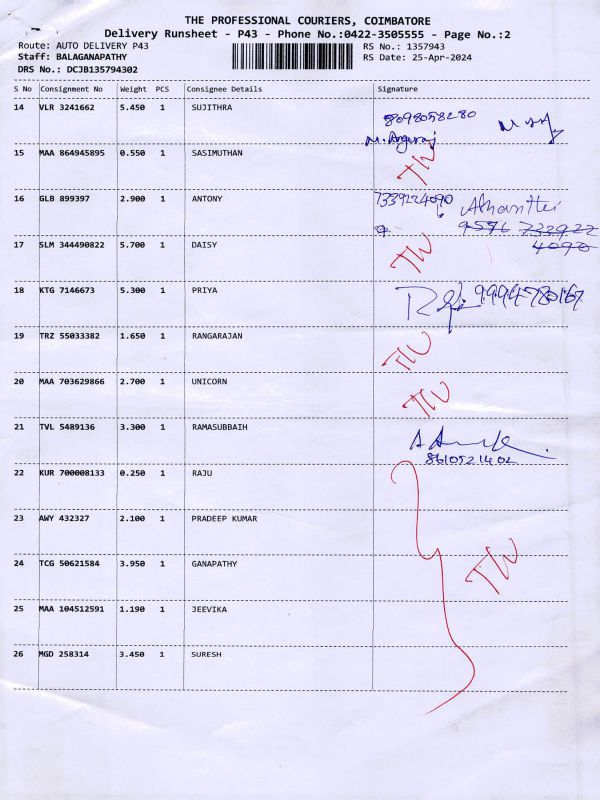 THE PROFESSIONAL COURIERS, COIMBATORE
Delivery Runsheet - P43 - Phone No.:0422-3505555 - Page No.:2
Route: AUTO DELIVERY P43 RS No.: 1357943
Staff: BALAGANAPATHY RS Date: 25-Apr-2024
DRS No.: DCJB135794302
S No Consignment No Weight PCS Consignee Details Signature
14 VLR 3241662 5.450 1 SUJITHRA
8098058280
15 MAA 864945895 0.550 1 SASIMUTHAN TW
16 GLB 899397 2.900 1 ANTONY 7339224090
9576 733922
4090
17 SLM 344490822 5.700 1 DAISY TW
18 KTG 7146673 5.300 1 PRIYA 9994780167
19 TRZ 55033382 1.650 1 RANGARAJAN TW
20 MAA 703629866 2.700 1 UNICORN TW
21 TVL 5489136 3.300 1 RAMASUBBAIH
8610521402
22 KUR 700008133 0.250 1 RAJU
23 AWY 432327 2.100 1 PRADEEP KUMAR
24 TCG 50621584 3.950 1 GANAPATHY TW
25 MAA 104512591 1.190 1 JEEVIKA
26 MGD 258314 3.450 1 SURESH